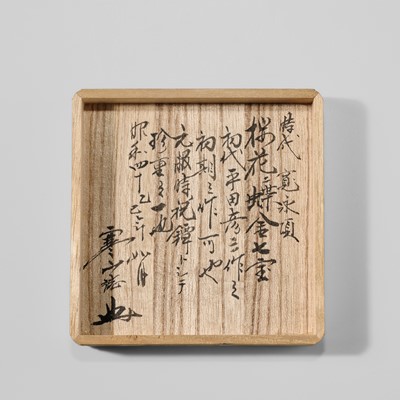 時代 寛永頃
桜花ニ蝶金七宝
初代平田彦三作之
初期之作可也
元服時祝鐔トシテ
珍重之一也
昭和四十乙巳年八月
寒山誌